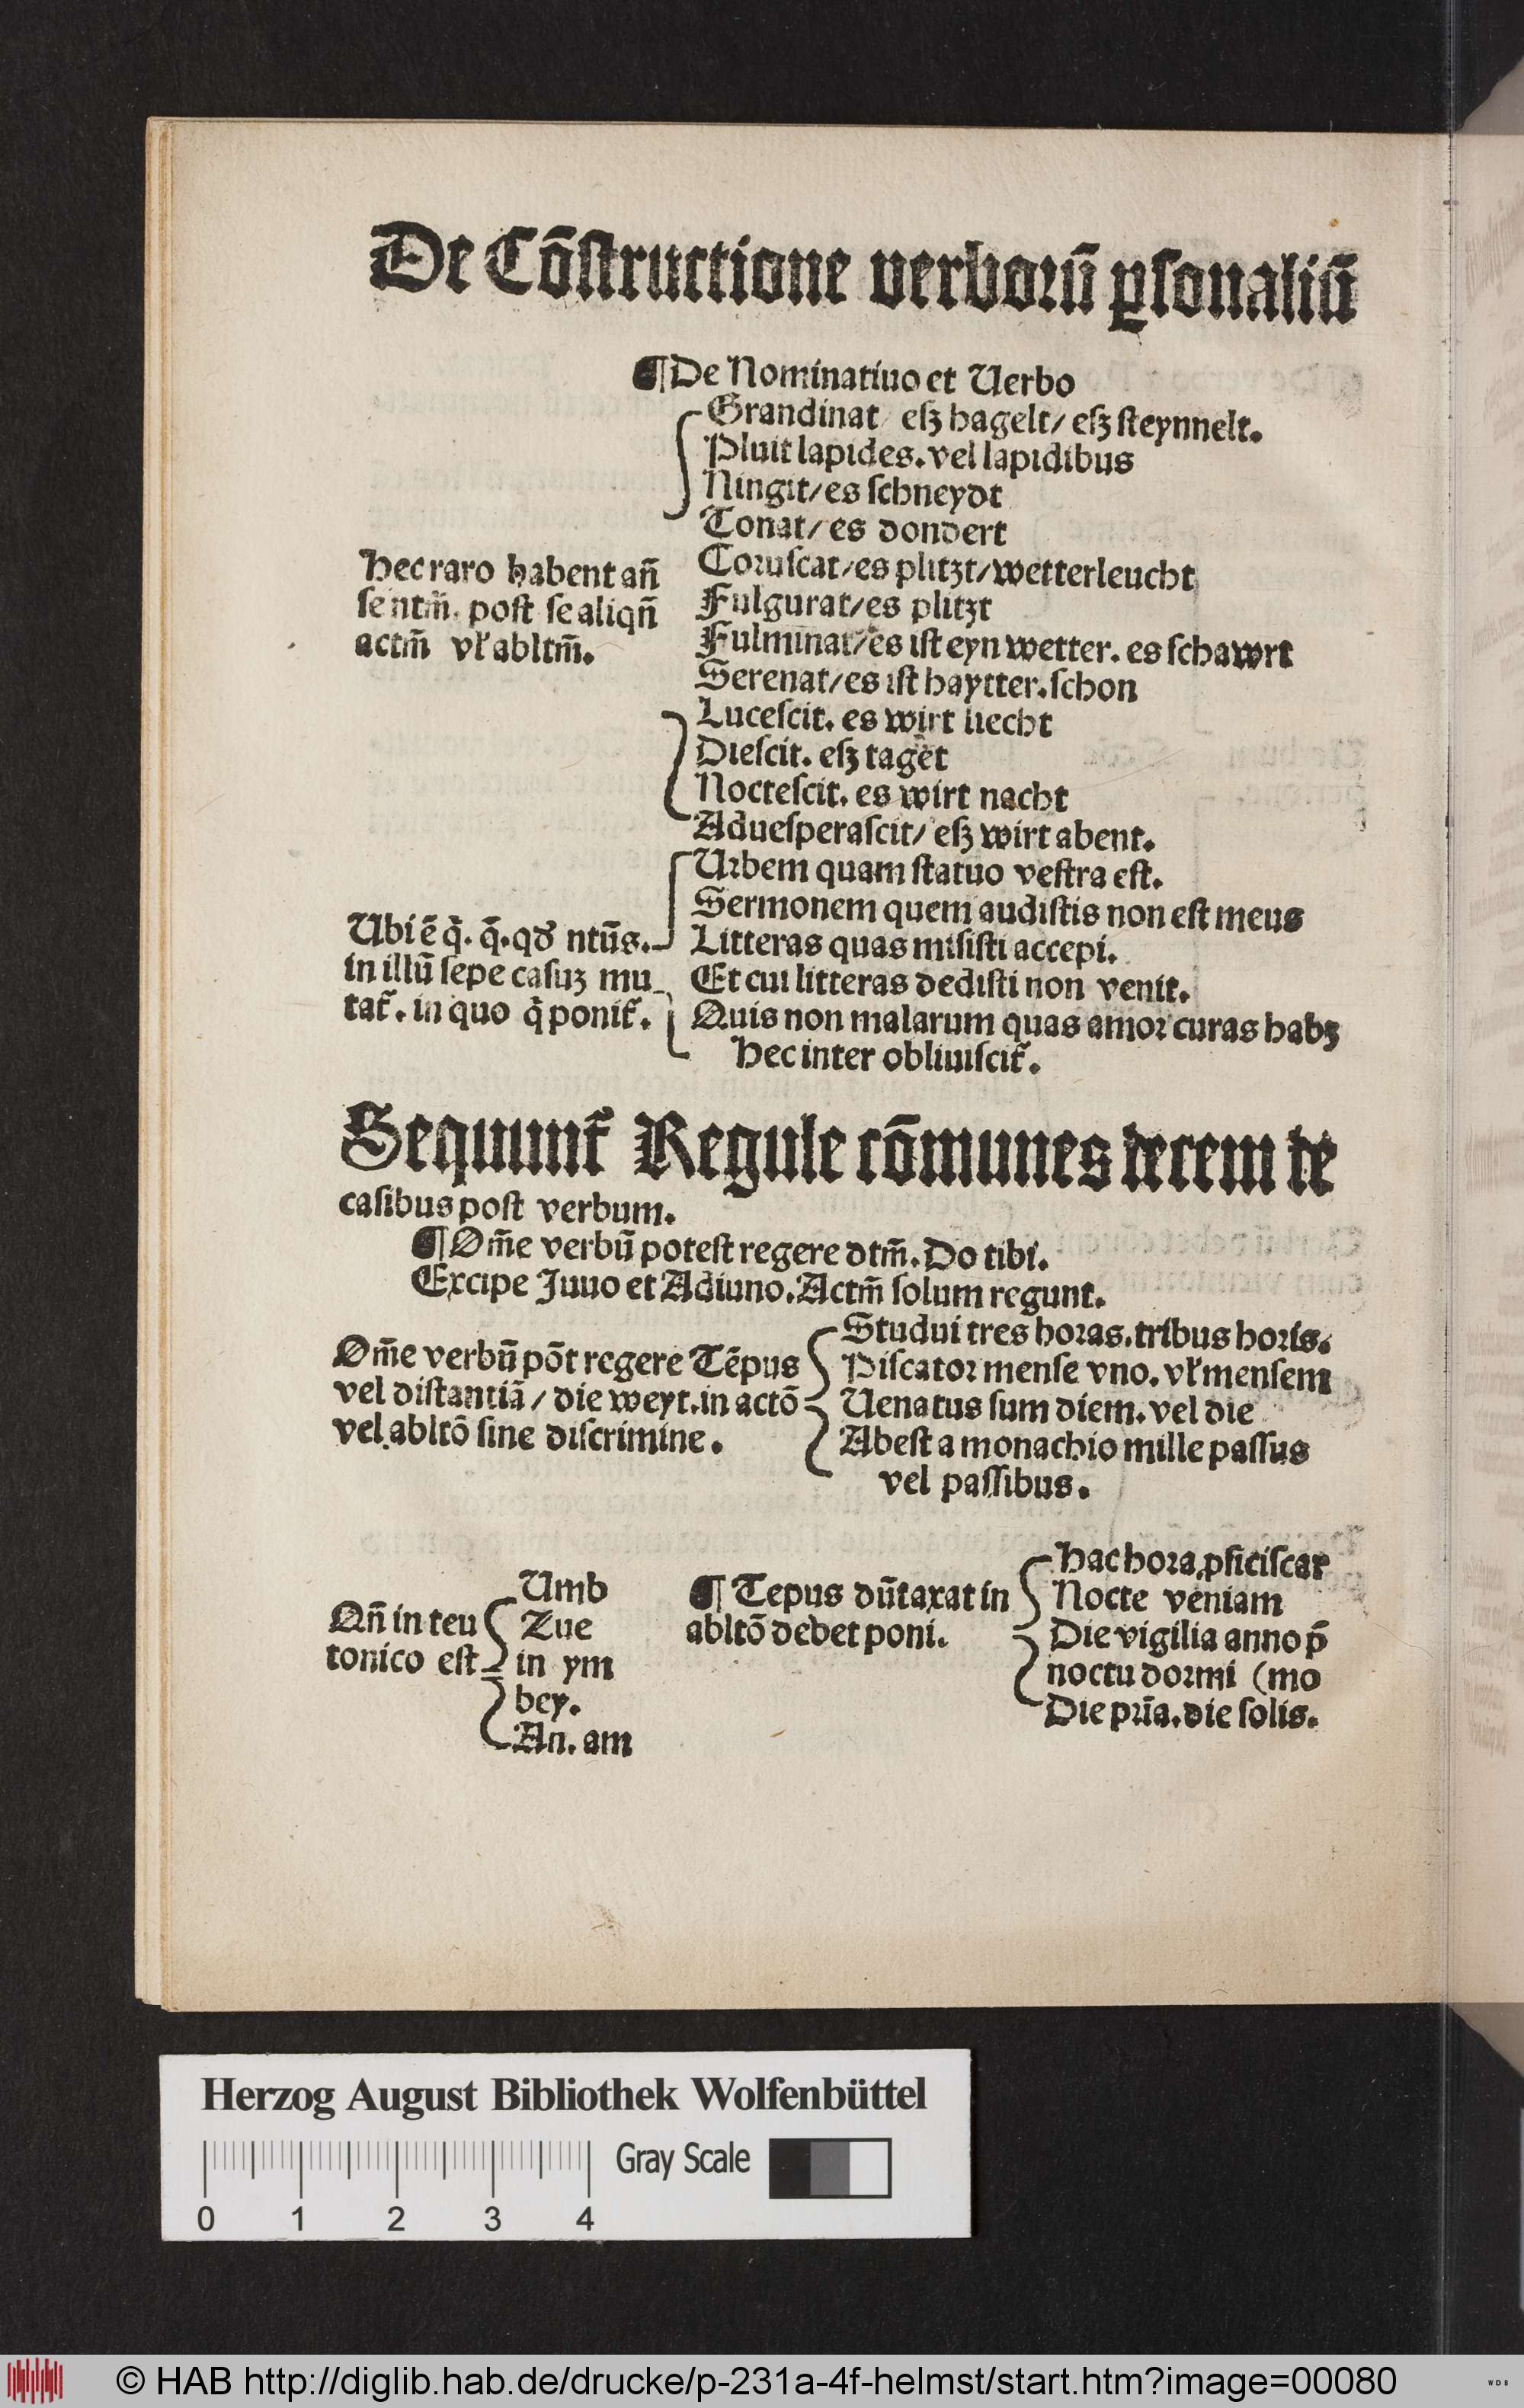 De Cõstructione verborũ p̱sonaliũ
¶De Nominatiuo et Uerbo
Grandinat esz hagelt/ esz steynnelt.
Pluit lapides. vel lapidibus
Ningit/es schneydt
Tonat/es dondert
Hec raro habent añ
se ntm̃. post se aliqñ
actm̃ vł abltm̃.
Coruscat/es plitzt/wetterleucht
Fulgurat/es plitzt
Fulminat/es ist eyn wetter. es schawrt
Serenat/es ist haytter. schon
Lucescit. es wirt liecht
Diescit. esz taget
Noctescit. es wirt nacht
Aduesperascit/ esz wirt abent.
Ubi ẽ q̇. q̄. qď ntũs.
in illũ sepe casuz mu
tat᷑. in quo q̇ ponit᷑.
Urbem quam statuo vestra est.
Sermonem quem audistis non est meus
Litteras quas misisti accepi.
Et cui litteras dedisti non venit.
Quis non malarum quas amor curas habz
Hec inter obliuiscit᷑.
Sequunt᷑ Regule cõmunes decem de
casibus post verbum.
¶Om̃e verbũ potest regere dtm̃. Do tibi.
Excipe Juuo et Adiuno. Actm̃ solum regunt.
Om̃e verbũ põt regere Tẽpus
vel distantiã/ die weyt. in actõ
vel abltõ sine discrimine.
Studui tres horas. tribus horis.
Piscator mense vno. vł mensem
Uenatus sum diem. vel die
Abest a monachio mille passus
vel passibus.
Qñ in teu
tonico est
Umb
Zue
in ym
bey.
An. am
¶ Tepus dũtaxat in
abltõ debet poni.
Hac hora ꝓficiscar
Nocte veniam
Die vigilia anno p̃
noctu dormi (mo
Die pr̃ia. die solis.
Herzog August Bibliothek Wolfenbüttel
Gray Scale
0 1 2 3 4
© HAB http://diglib.hab.de/drucke/p-231a-4f-helmst/start.htm?image=00080
WDB